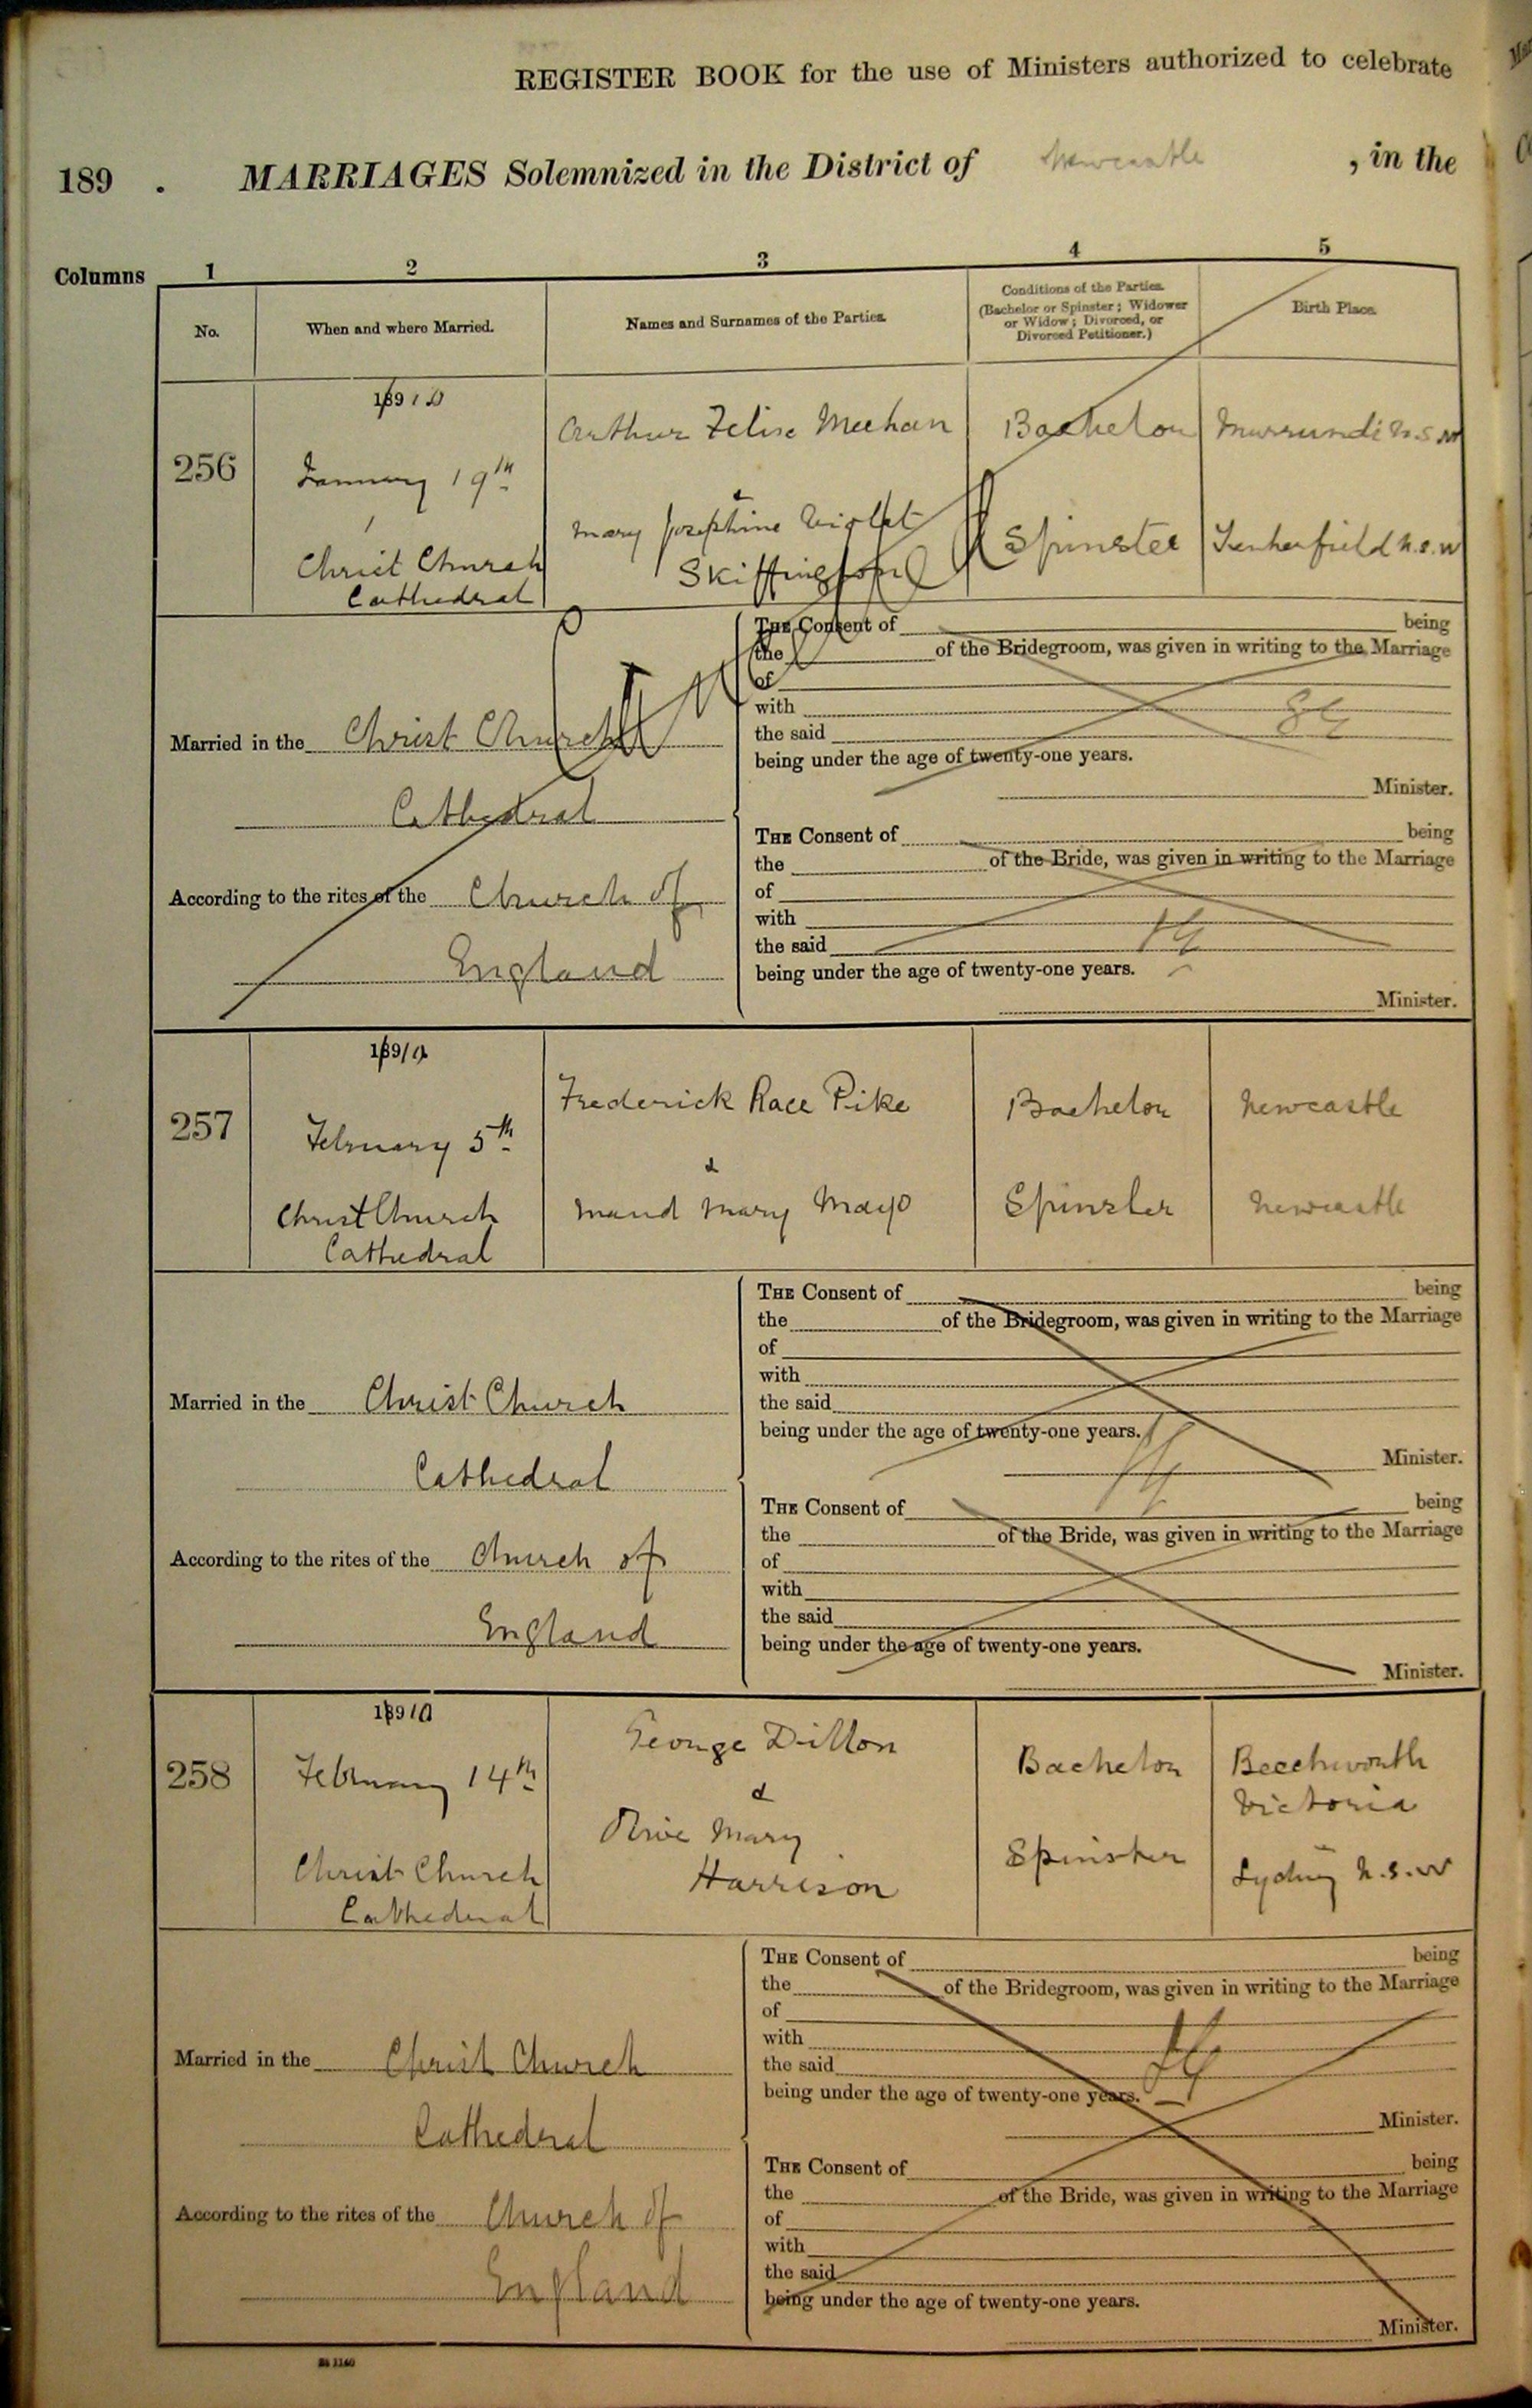 REGISTER BOOK for the use of Ministers authorized to celebrate
189 . MARRIAGES Solemnized in the District of Newcastle , in the
Columns 1 2 3 4 5
No. When and where Married. Names and Surnames of the Parties. Conditions of the Parties. (Bachelor or Spinster; Widower or Widow; Divorced, or Divorced Petitioner.) Birth Place.
18910
Arthur Meehan Bachelor Murrurundi N.S.W
256
January 19th
&
Mary Josephine Violet
Skiffington Spinster Tenterfield N.S.W
Christ Church
Cathedral
THE Consent of being
the of the Bridegroom, was given in writing to the Marriage
of
with
Married in the Christ Church
the said
being under the age of twenty-one years.
Minister.
Cathedral
THE Consent of being
the of the Bride, was given in writing to the Marriage
of
According to the rites of the Church of
with
the said
England
being under the age of twenty-one years.
Minister.
18910
Frederick Race Pike Bachelor Newcastle
257
February 5th
&
Christ Church
Cathedral
Maud Mary Mayo Spinster Newcastle
THE Consent of being
the of the Bridegroom, was given in writing to the Marriage
of
with
Married in the Christ Church
the said
being under the age of twenty-one years.
Minister.
Cathedral
THE Consent of being
the of the Bride, was given in writing to the Marriage
According to the rites of the Church of
of
with
the said
England
being under the age of twenty-one years.
Minister.
18910
George Dillon Bachelor Beechworth
Victoria
258
February 14th
&
Olive Mary
Harrison Spinster Sydney N.S.W
Christ Church
Cathedral
THE Consent of being
the of the Bridegroom, was given in writing to the Marriage
of
with
Married in the Christ Church
the said
being under the age of twenty-one years.
Minister.
Cathedral
THE Consent of being
the of the Bride, was given in writing to the Marriage
According to the rites of the Church of
of
with
the said
England
being under the age of twenty-one years.
Minister.